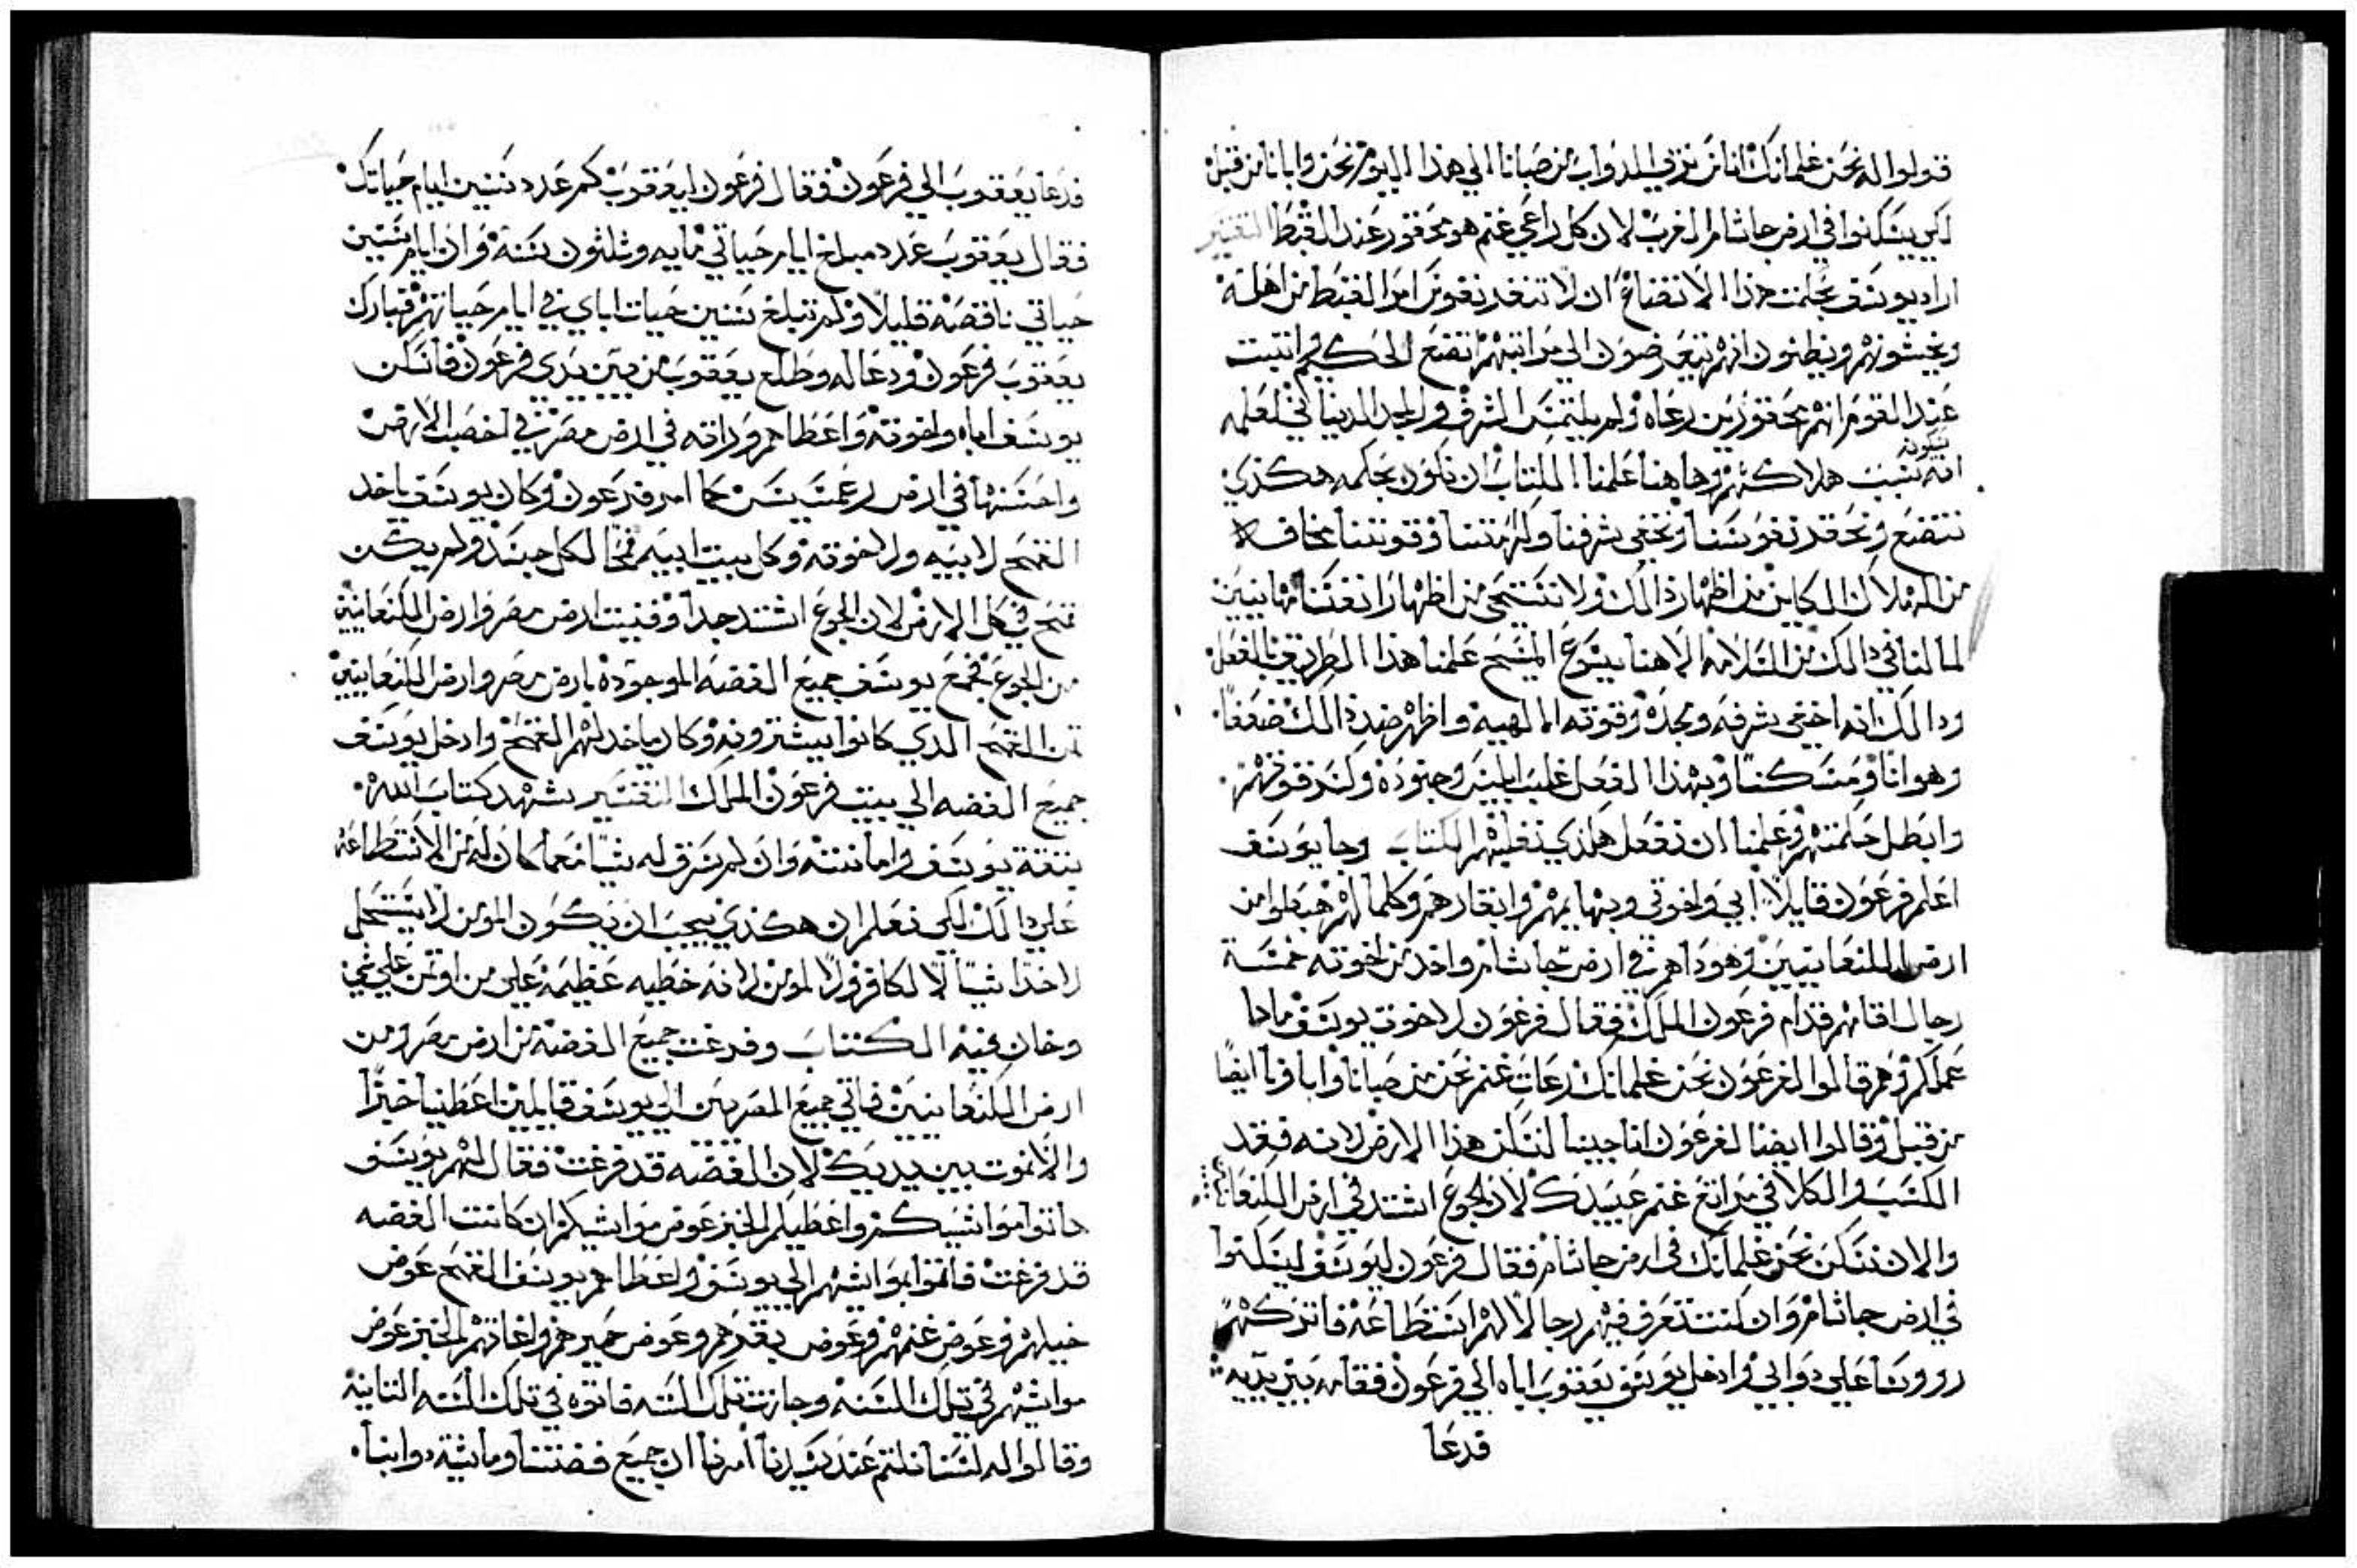 قولوا له نحن غلمانك اناس نربي الدواب من صبانا الي هذا اليوم نحن وابانا من قبل
لكي يسكنوا في ارض جاشام الغرب لان كل راعي غنم هو محقور عند القبط التفسير
اراد يوسف بحكمت هذا الاتضاع ان لا تنغدر نفوس امرا القبط من اهله
ويخشونهم ويظنون انهم يتعرضون الي مراتبهم اتضع الحكيم اتيت
عند القوم انهم محقورين رعاه ولم يلتمس الشرف والمجد الدنياني لعلمه
انه يثبت هلاكهم وهاهنا علمنا الكتاب ان نكون بحكمه هكذي
تكون
نتضع ونحقر نفوسنا ونخفي شرفنا وكرامتنا وقوتنا مخافه
من الهلاك الكاين من اظهار ذالك ولا نستحي من اظهار انفسنا مهانين
لما لنا في ذالك من السلامه الاهنا يسوع المسيح علمنا هذا الطريق بالفعل
وذالك انه اخفي شرفه ومجده وقوته الالهيه واظهر ضد ذالك ضعفا
وهوانا ومسكنتا وبهذا الفعل غلب ابليس وجنوده وكسر قوتهم
وابطل حكمتهم وعلمنا ان نفعل هكذي نغلبهم الكتاب وجا يوسف
اعلم فرعون قايلا ابي واخوتي وبهايمهم وابقارهم وكلما لهم هبطوا من
ارض الكنعانيين وهوذا هم في ارض جاشام واخذ من اخوته خمسة
رجال اقامهم قدام فرعون الملك فقال فرعون لاخوت يوسف ماذا
عملكم وهم قالوا لفرعون نحن غلمانك رعات غنم نحن من صبانا وابهاتنا ايضا
من قبل وقالوا ايضا لفرعون انا جينا لنسكن هذا الارض لانه فقد
العشب والكلا في مراتع غنم عبيدك لان الجوع اشتد في ارض الكنعانيين
والان نسكن نحن غلمانك في ارض جاشام فقال فرعون ليوسف ليسكنوا
في ارض جاشام وان كنت تعرف فيهم رجالا لهم استطاعه فاتركهم
رووسا علي دوابي وادخل يوسف يعقوب اباه الي فرعون فقامه بين يديه
فدعا
فدعا يعقوب الي فرعون فقال فرعون ليعقوب كم عدد سنين ايام حياتك
فقال يعقوب عدد مبلغ ايام حياتي مايه وثلثون سنه وان ايام سنين
حياتي ناقصه قليلا ولم تبلغ سنين حيات اباي في ايام حياتهم فبارك
يعقوب فرعون ودعا له وطلع يعقوب من بين يدي فرعون فاسكن
يوسف اباه واخوته واعطاهم وراثه في ارض مصر في اخصب الارض
واحسنها في ارض رعمسيس كما امر فرعون وكان يوسف ياخد
القمح لابيه ولاخوته وكل بيت ابيه قمحا لكل جسد ولم يكن
قمح في كل الارض لان الجوع اشتد جدا وفنيت ارض مصر وارض الكنعانيين
من الجوع فجمع يوسف جميع الفضه الموجوده بارض مصر وارض الكنعانيين
ثمن القمح الذي كانوا يشترونه وكان ياخد لهم القمح وادخل يوسف
جميع الفضه الي بيت فرعون الملك التفسير يشهد كتاب الله
بثقة يوسف وامانته وان لم يسرق له شيا معما كان له من الاستطاعه
علي ذالك لكي نعلم ان هكذي يجب ان يكون المومن لا يستحل
لاخد شيا لا لكافر ولا لمومن لانه خطيه عظيمه علي من اوتمن علي شي
وخان فيه الكتاب وفرغت جميع الفضه من ارض مصر ومن
ارض الكنعانيين فاتي جميع المصريين الي يوسف قايلين اعطنا خبزا
والا نموت بين يديك لان الفضه قد فرغت فقال لهم يوسف
هاتوا مواشيكم واعطيكم الخبز عوض مواشيكم ان كانت الفضه
قد فرغت فاتوا بمواشيهم الي يوسف واعطاهم يوسف القمح عوض
خيلهم وعوض غنمهم وعوض بقرهم وعوض حميرهم واغاثهم الخبز عوض
مواشيهم في تلك السنه وجازت تلك السنه فاتوه في تلك السنه الثانيه
وقالوا له لسنا نكتم عند سيدنا امرنا ان جميع فضتنا وماشيه دوابنا